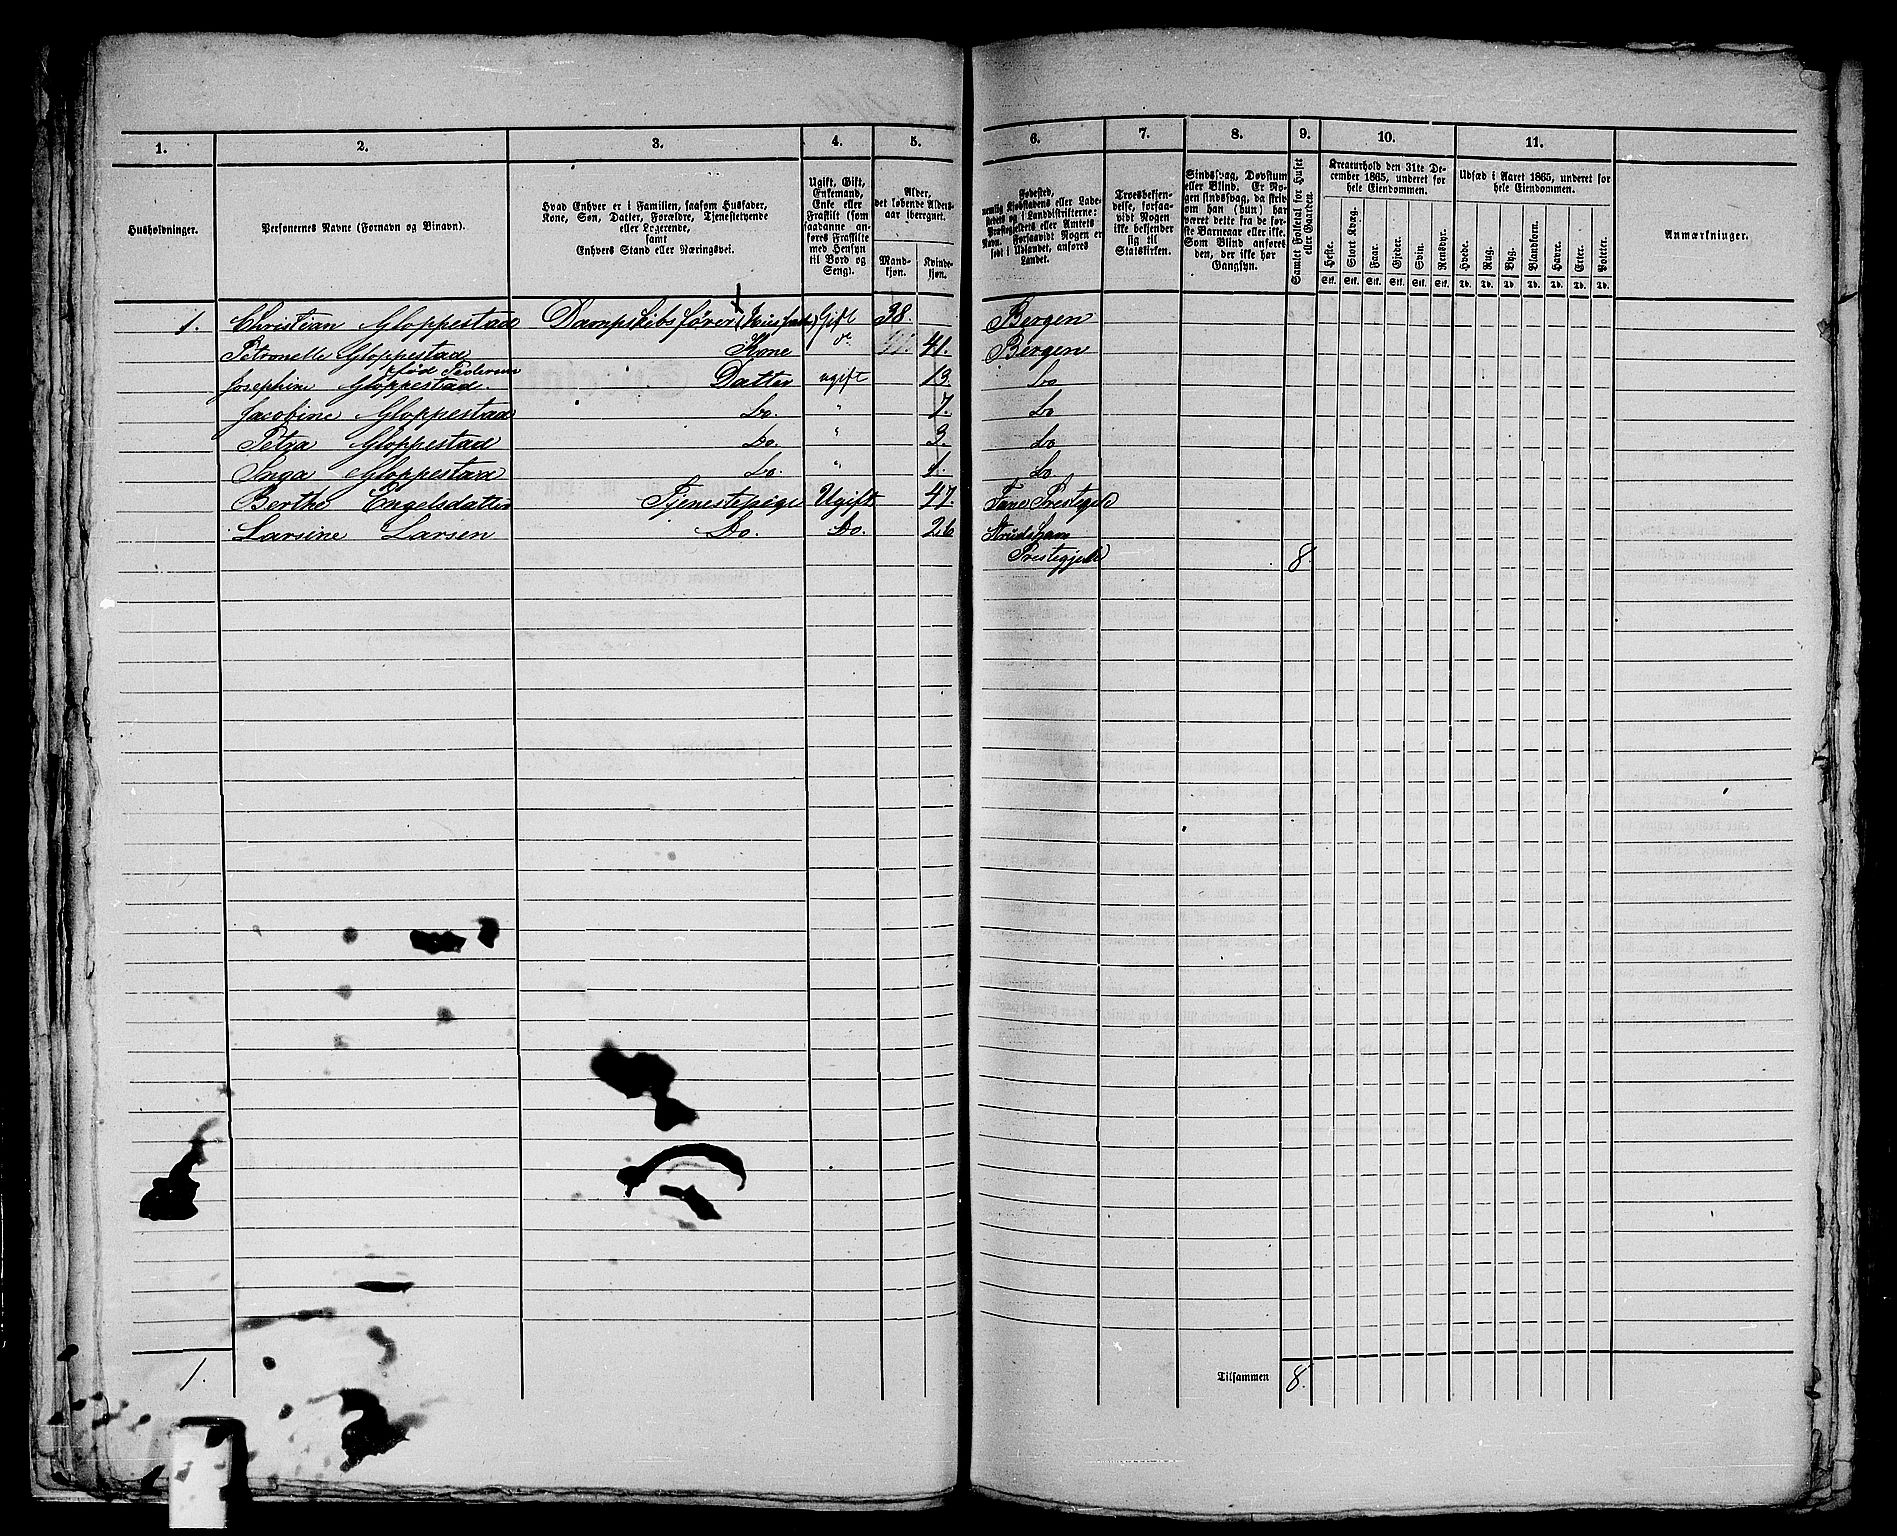 1. 2. 3. 4. 5. 6. 7. 8. 9. 10. 11.
Husholdninger.
Personernes Navne (Fornavn og Binavn).
Hvad Enhver er i Familien, saasom Husfader,
Kone, Søn, Datter, Forældre, Tjenestetyende
eller Logerende,
samt
Enhvers Stand eller Næringsvei.
Ugift, Gift,
Enkemand,
Enke eller
Fraskilt (som
saadanne an-
føres Fraskilte
med Hensyn
til Bord og
Seng).
Alder,
det løbende Alders-
aar iberegnet.
Mand-
kjøn.
Kvinde-
kjøn.
Fødested,
nemlig Kjøbstadens eller Lade-
stedets og i Landdistrikterne:
Præstegjeldets eller Amtets
Navn. Forsaavidt Nogen er
født i Udlandet, anføres
Landet.
Troesbekjen-
delse, forsaa-
vidt Nogen
ikke bekjender
sig til
Statskirken.
Sindssvag, Døvstum
eller Blind. Er No-
gen sindssvag, da skriv
om han (hun) har
været dette fra de før-
ste Barneaar eller ikke.
Som Blind anføres
den, der ikke har
Gangsyn.
Samlet Folketal for Huset
eller Gaarden.
Kreaturhold den 31te De-
cember 1865, underet for
hele Eiendommen.
Heste. Stort Kvæg. Faar. Gjeder. Svin. Rensdyr.
Stk. Stk. Stk. Stk. Stk. Stk.
Udsæd i Aaret 1865, underet for
hele Eiendommen.
Hvede. Rug. Byg. Blandkorn. Havre. Erter. Poteter.
Td. Td. Td. Td. Td. Td. Td.
Anmærkninger.
1. Christian Gloppestad Dampskibsfører (Husfader) Gift 38. Bergen
Petronelle Gloppestad Kone do 41. Bergen
født Pedersen
Josephine Gloppestad. Datter ugift 13. Do
Jacobine Gloppestad Do. " 7. Do
Petra Gloppestad Do. " 3. Do
Inga Gloppestad Do. " 1. Do
Berthe Engelsdatter Tjenestepige Ugift 47. Fane Prestegjeld
Larsine Larsen Do. Do. 26 Strudshavn
Prestegjeld 8.
1. Tilsammen 8.